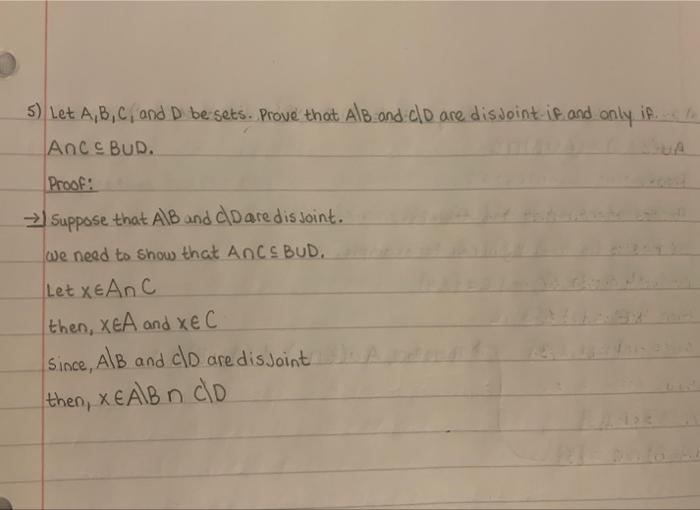 5) Let A, B, C, and D be sets. Prove that A\B and C\D are disjoint if and only if
A∩C ⊆ B∪D.
Proof:
→) Suppose that A\B and C\D are disjoint.
we need to show that A∩C ⊆ B∪D.
Let x∈A∩C
then, x∈A and x∈C
since, A\B and C\D are disjoint
then, x∈A\B ∩ C\D